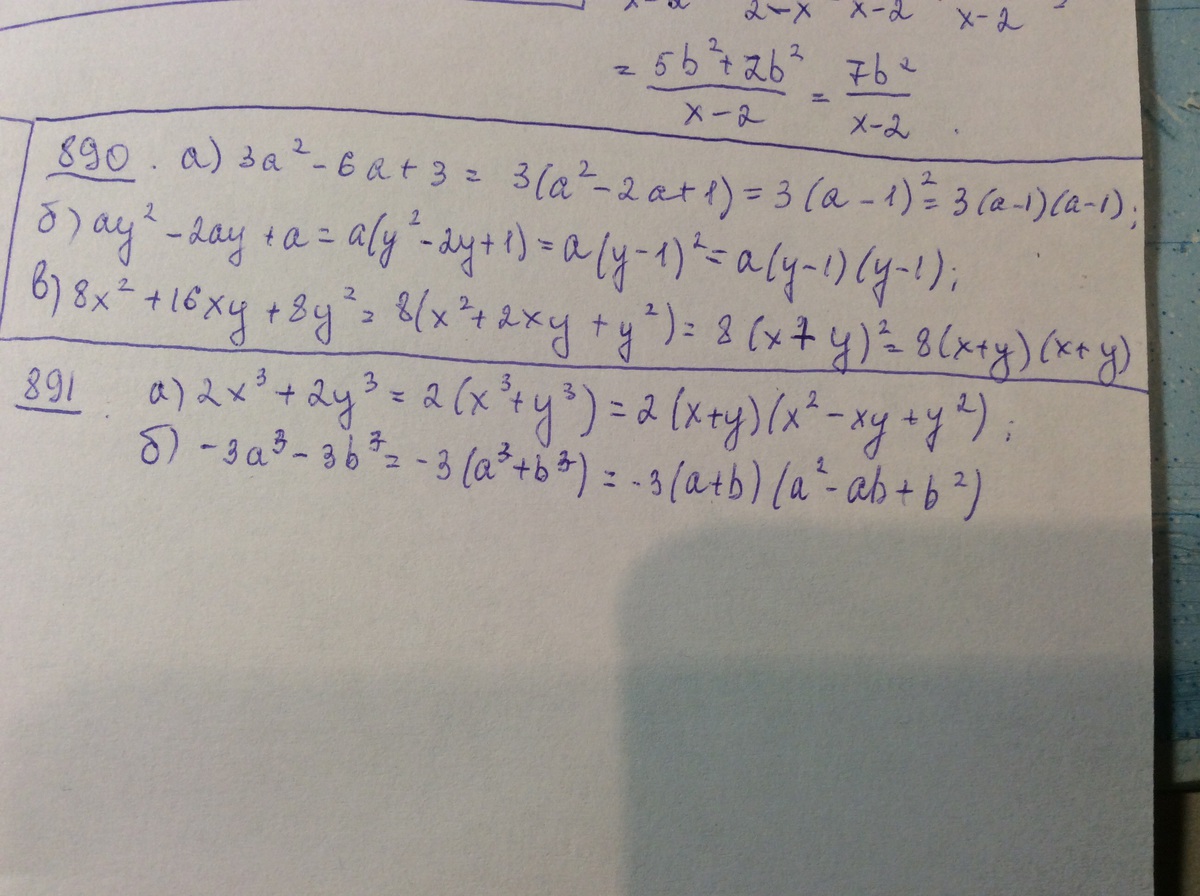 x-2 2-x x-2 x-2
= (5b²+2b²)/(x-2) = 7b²/(x-2) .
890. а) 3a² - 6a + 3 = 3(a² - 2a + 1) = 3(a - 1)² = 3(a-1)(a-1);
б) ay² - 2ay + a = a(y² - 2y + 1) = a(y - 1)² = a(y-1)(y-1);
в) 8x² + 16xy + 8y² = 8(x² + 2xy + y²) = 8(x + y)² = 8(x+y)(x+y)
891. а) 2x³ + 2y³ = 2(x³+y³) = 2(x+y)(x² - xy + y²);
б) -3a³ - 3b³ = -3(a³+b³) = -3(a+b)(a² - ab + b²)